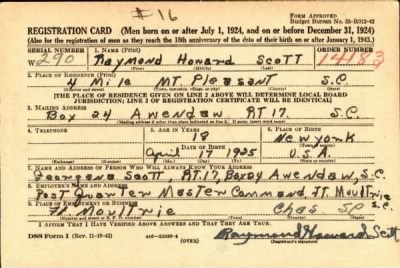 #16
FORM APPROVED
Budget Bureau No. 33-R012-42
REGISTRATION CARD—(Men born on or after July 1, 1924, and on or before December 31, 1924)
(Also for the registration of men as they reach the 18th anniversary of the date of their birth on or after January 1, 1943.)
SERIAL NUMBER
1. NAME (Print)
ORDER NUMBER
W 290
Raymond Howard Scott
14183
(First) (Middle) (Last)
2. PLACE OF RESIDENCE (Print)
4 Mile Mt. Pleasant S.C.
(Number and street) (Town, township, village, or city) (County) (State)
[THE PLACE OF RESIDENCE GIVEN ON LINE 2 ABOVE WILL DETERMINE LOCAL BOARD
JURISDICTION; LINE 2 OF REGISTRATION CERTIFICATE WILL BE IDENTICAL]
3. MAILING ADDRESS
Box 24 Awendaw RT.17, S.C.
[Mailing address if other than place indicated on line 2. If same, insert word same]
4. TELEPHONE
5. AGE IN YEARS
6. PLACE OF BIRTH
18
New York
DATE OF BIRTH
(Town or county)
April 17 1925
U.S.A.
(Exchange) (Number)
(Mo.) (Day) (Yr.)
(State or country)
7. NAME AND ADDRESS OF PERSON WHO WILL ALWAYS KNOW YOUR ADDRESS
Scott, RT.17, Box 24 Awendaw, S.C.
8. EMPLOYER'S NAME AND ADDRESS
Post Quarter Master Command, Ft. Moultrie S.C.
9. PLACE OF EMPLOYMENT OR BUSINESS
Ft Moultrie Chas.
(Number and street or R. F. D. number) (Town) (County) (State)
I AFFIRM THAT I HAVE VERIFIED ABOVE ANSWERS AND THAT THEY ARE TRUE.
DSS Form 1 (Rev. 11-16-42)
(OVER)
Raymond Howard Scott
(Registrant's signature)